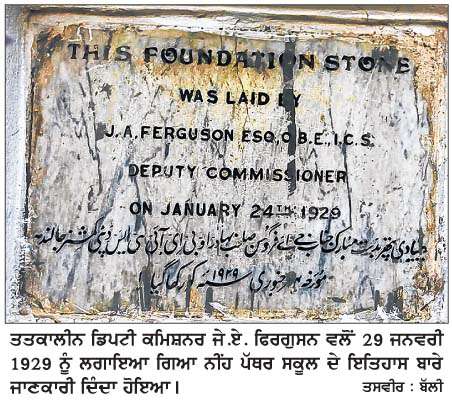 THIS FOUNDATION STONE
WAS LAID BY
J.A. FERGUSON ESQ., O.B.E., I.C.S.
DEPUTY COMMISSIONER
ON JANUARY 24TH 1929
جنوری ۱۹۲۹ء کو رکھا گیا
ਤਤਕਾਲੀਨ ਡਿਪਟੀ ਕਮਿਸ਼ਨਰ ਜੇ.ਏ. ਫਿਰਗੁਸਨ ਵਲੋਂ 29 ਜਨਵਰੀ
1929 ਨੂੰ ਲਗਾਇਆ ਗਿਆ ਨੀਂਹ ਪੱਥਰ ਸਕੂਲ ਦੇ ਇਤਿਹਾਸ ਬਾਰੇ
ਜਾਣਕਾਰੀ ਦਿੰਦਾ ਹੋਇਆ। ਤਸਵੀਰ : ਬੱਲੀ